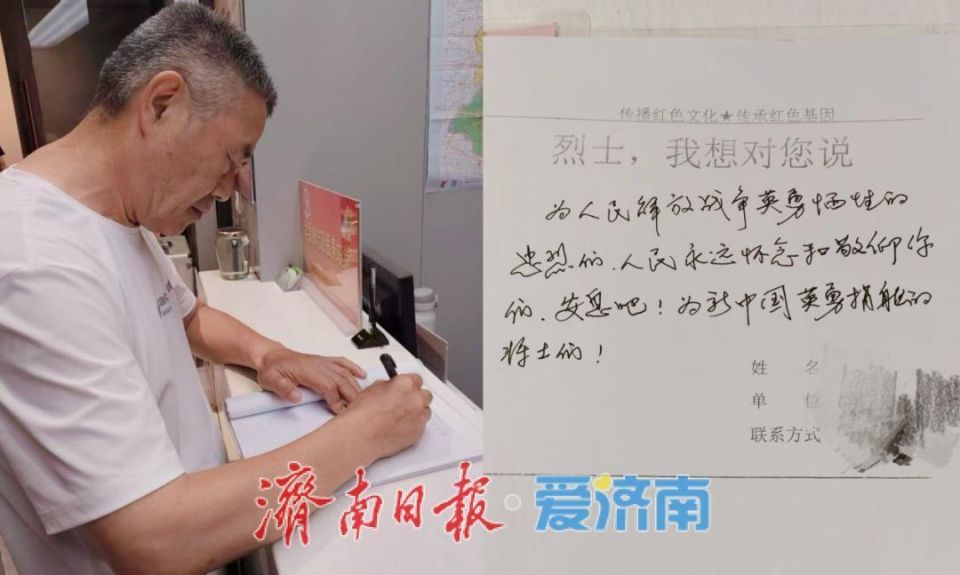 传播红色文化★传承红色基因
烈士，我想对您说
为人民解放战争英勇牺牲的
忠烈们、人民永远怀念和敬仰你
们、安息吧！为新中国英勇捐躯的
将士们！
姓 名
单 位
联系方式
濟南日报·爱济南